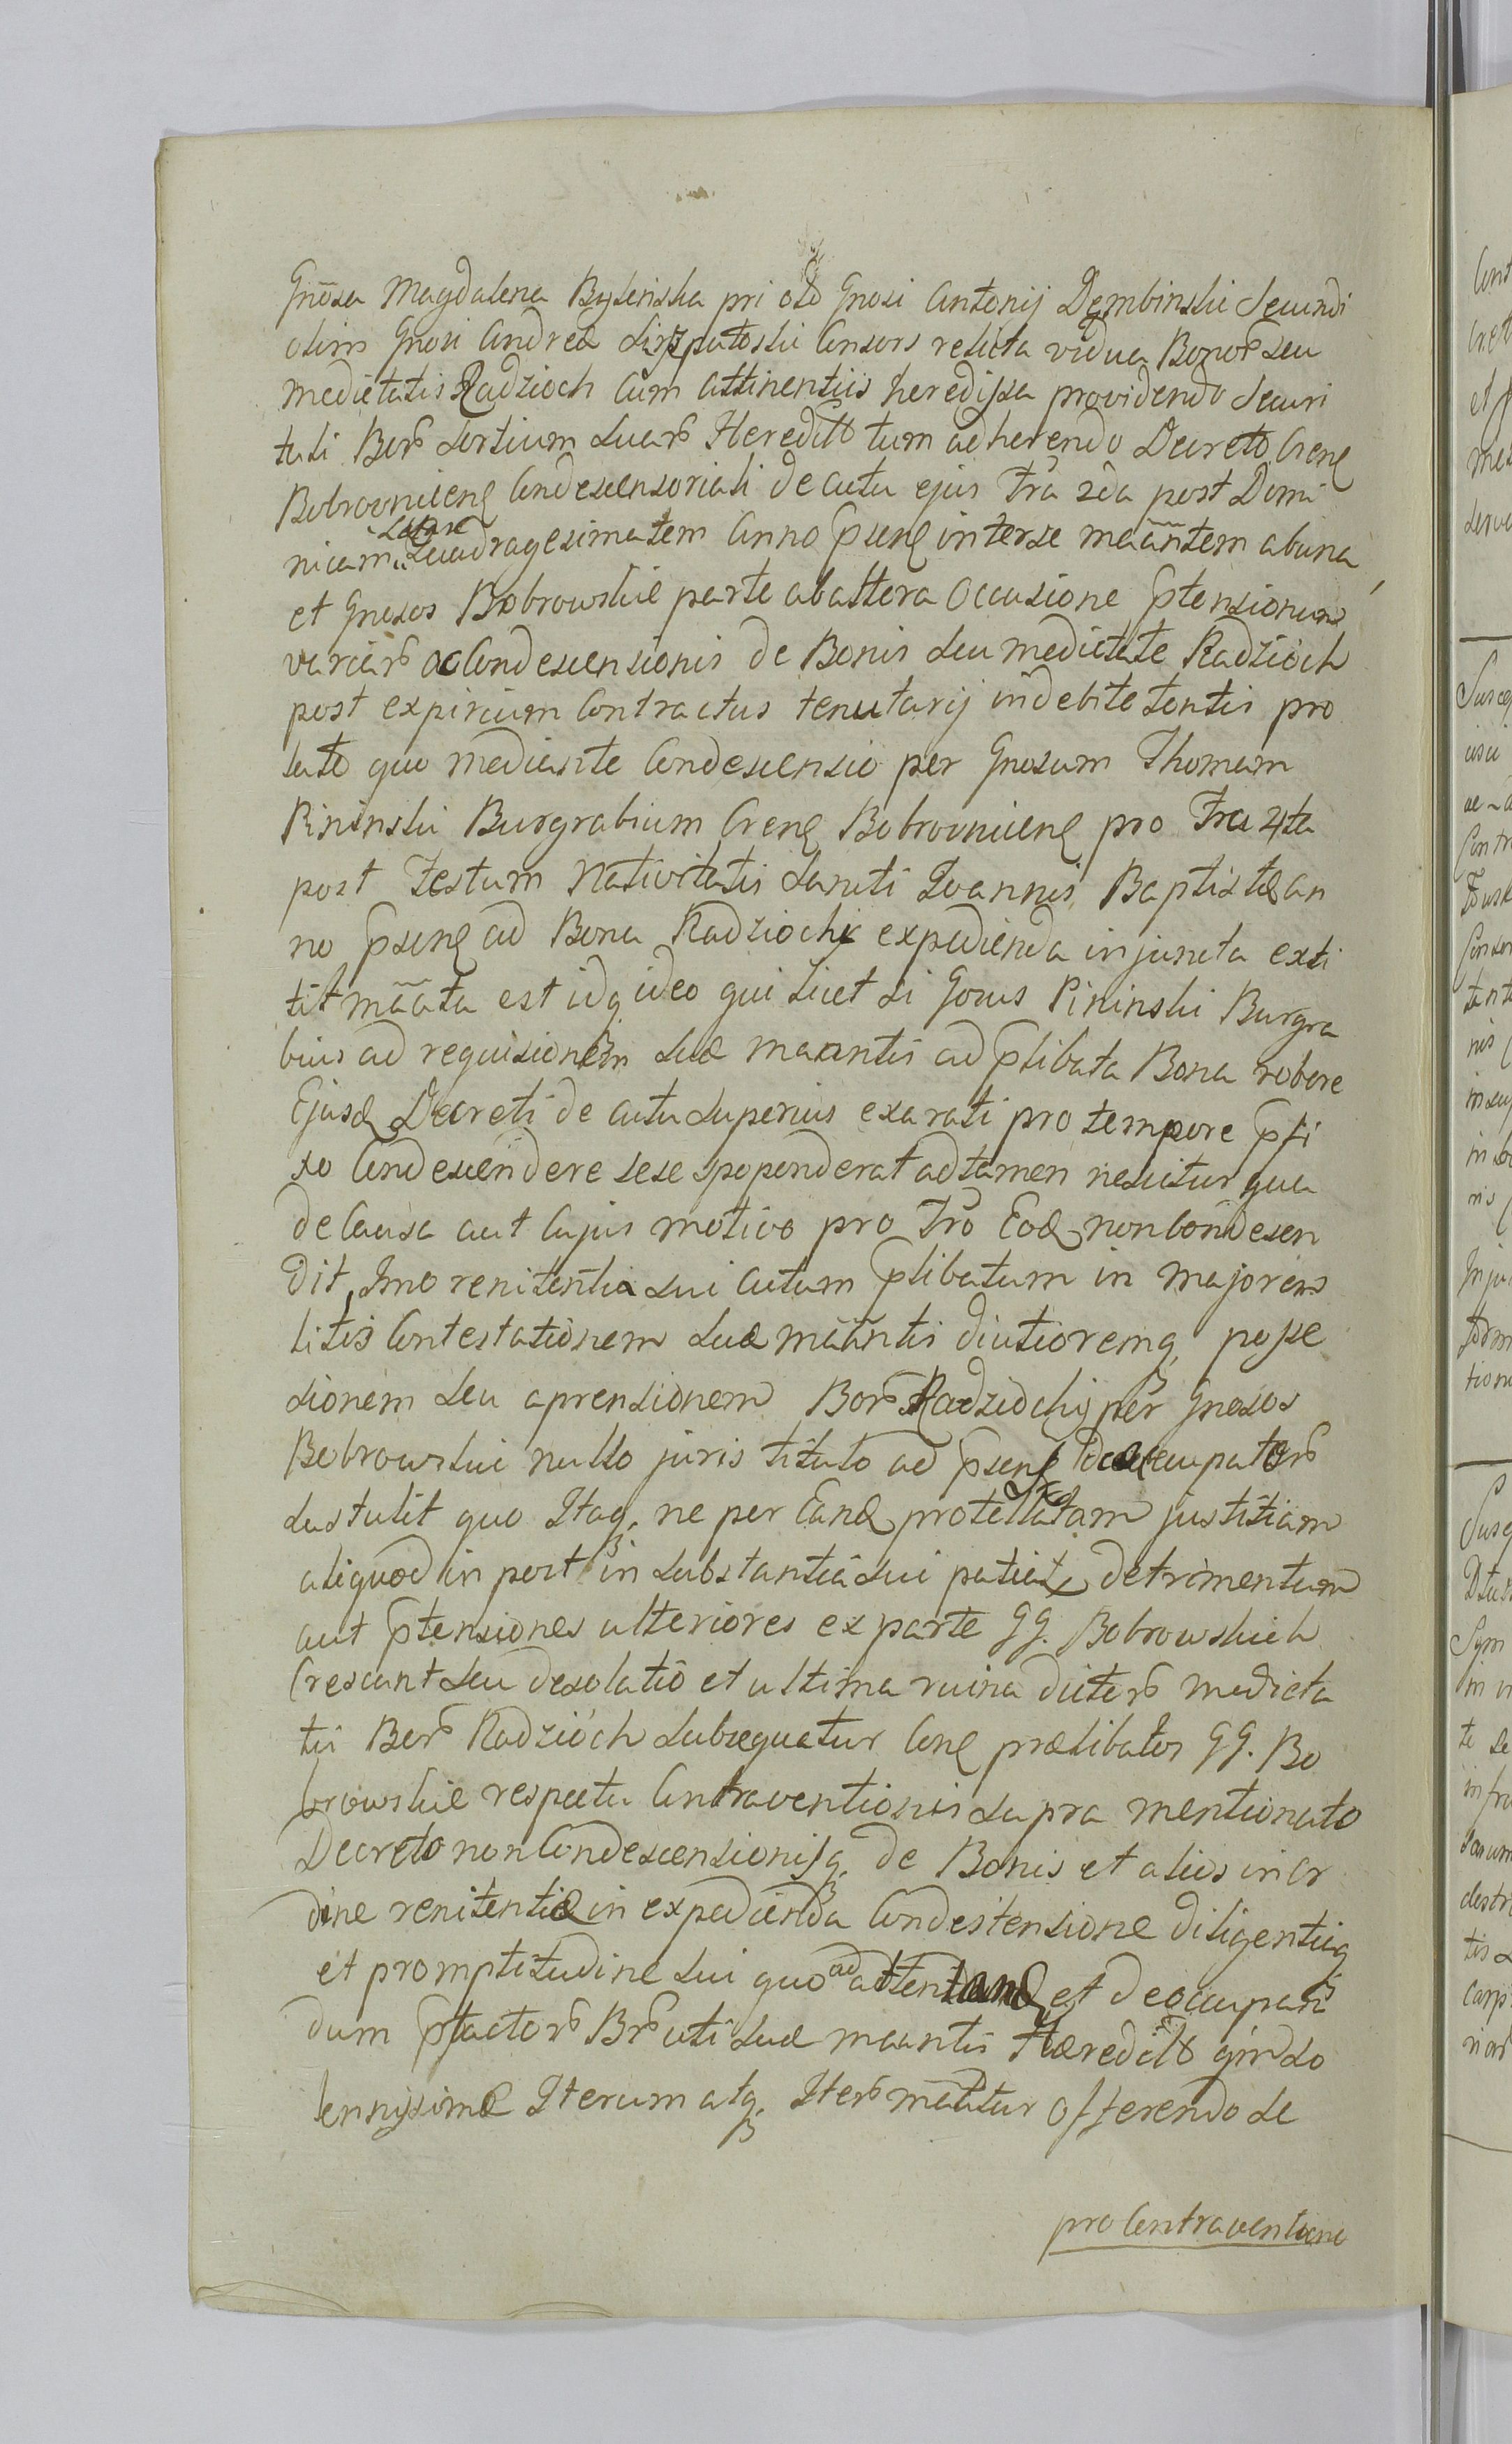 Gnosa Magdalena Bylinska pri olo Gnosi Antonij Dembinski Secundi
olim Gnosi Andreæ consors relicta vidua Bonor seu
medietatis Radzioch cum attinentiis heredissa providendo Securi
tati Bor Sortium Suar Heredit tum adherendo Decreto Crens
Bobrovnicens Condescensoriali de actu ejus Fra 2da post Domi
nicam Lætare Quadragesimatem Anno psens inter se maantem ab una
et Gnosos Bobrowskie parte ab altera Occasione ptensionum
variar ac Condescensionis de Bonis seu medietate Radzioch
post expirium Contractus tenutarij indebite tentis pro
lato quo mediante Condescensio per Gnosum Thomam
Pininski Burgrabium Crens Bobrovnicens pro Fra 4ta
post Festum Nativitatis Sancti Joannis Baptistæ an
no psens ad Bona Radziochy expedienda injuncta exti
tit maata est idq ideo qui licet si Gosus Pininski Burgra
bius ad requisionem suæ maantis ad plibata Bona robore
Ejusd Decreti de actu superius exarati pro tempore pfi
xo Condescendere sese spoponderat adtamen nescitur qua
de causa aut cujus motivo pro Tro Eod non condescen
dit, Imo renitentia sui actum plibatum in majorem
litis Contestationem suæ maantis diutioremq posse
sionem seu aprensionem Bor Radziochy per Gnosos
Bobrowskie nullo juris titulo ad psens occupator
sustulit quo Itaq ne per Eand protellatam justitiam
aliquod in post in substantia sui patiat detrimentum
aut ptensiones ulteriores ex parte GG. Bobrowskich
Crescant seu desolatio et ultima ruina dictor medieta
tis Bor Radzioch subsequatur Cons prælibatos GG. Bo
browskie respectu Contraventionis supra mentionato
Decreto non Condescensionisq de Bonis et alias in or
dine renitentiæ in expedienda Condestensione diligentiaq
et promptitudine sui quo ad et deoccupan
dum pfactor Br uti suæ maantis Hæredit qm so
lennissime Iterum atq Iter maatur offerendo se
pro Contraventione